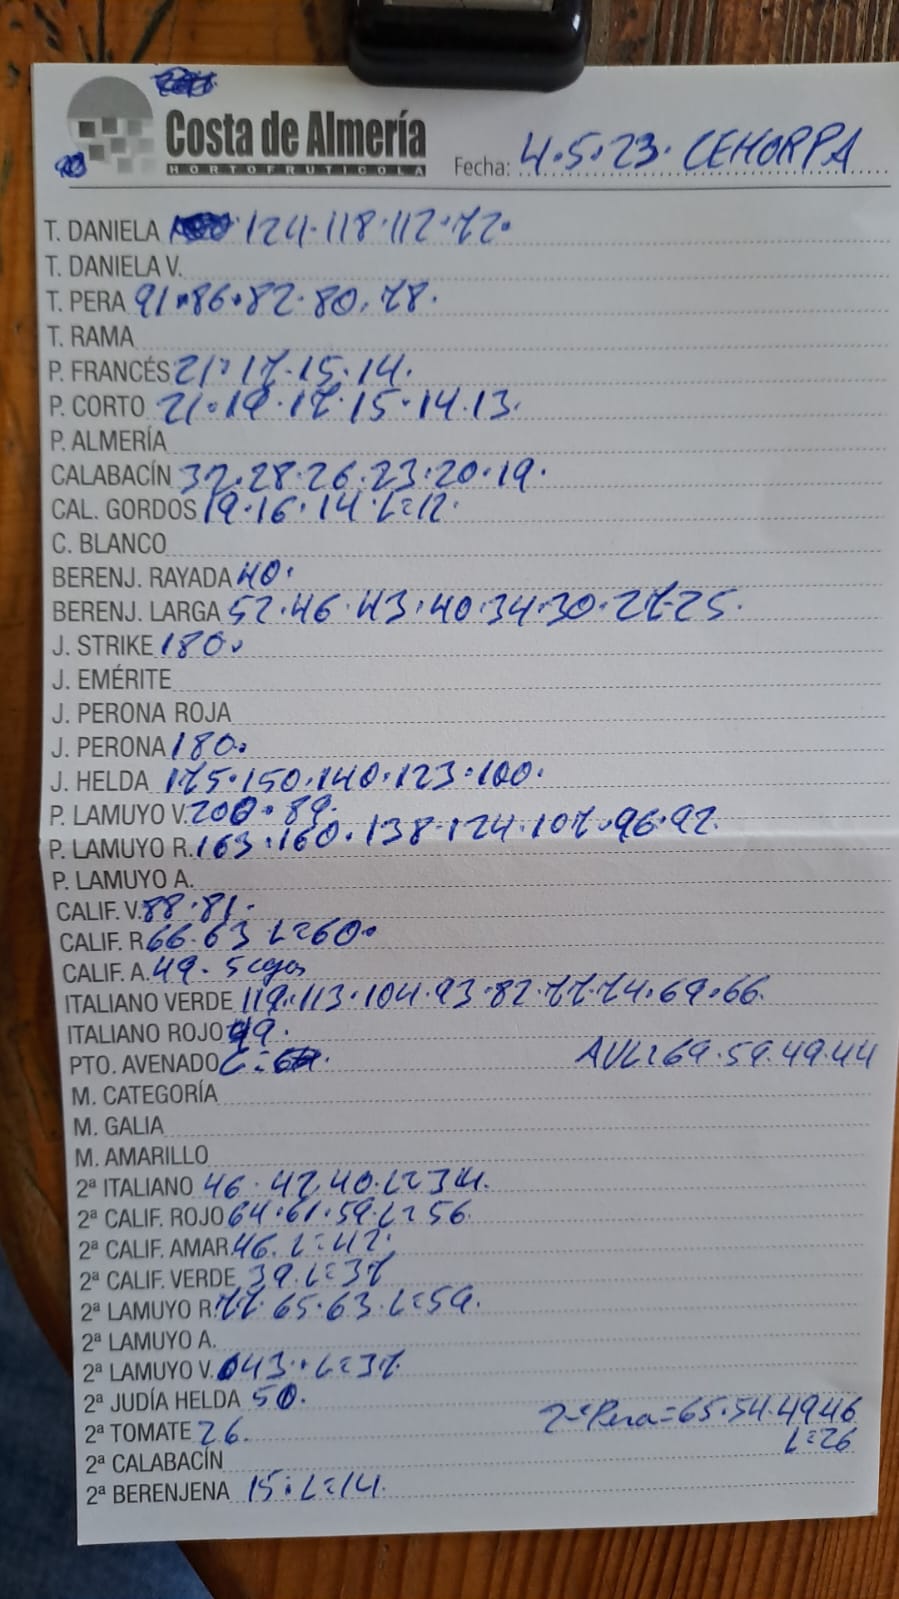 Costa de Almería
HORTOFRUTICOLA
Fecha: 4.5.23. CEHORPA
T. DANIELA 124.118.112.72.
T. DANIELA V.
T. PERA 91.86.82.80.78.
T. RAMA
P. FRANCÉS 21.17.15.14.
P. CORTO 21.19.17.15.14.13.
P. ALMERÍA
CALABACÍN 32.28.26.23.20.19.
CAL. GORDOS 19.16.14.L=12.
C. BLANCO
BERENJ. RAYADA 40.
BERENJ. LARGA 52.46.43.40.34.30.27.25.
J. STRIKE 180.
J. EMÉRITE
J. PERONA ROJA
J. PERONA 180.
J. HELDA 175.150.140.123.100.
P. LAMUYO V. 200.89.
P. LAMUYO R. 163.160.138.124.107.96.92.
P. LAMUYO A.
CALIF. V. 88.81.
CALIF. R 66.63 L=60.
CALIF. A. 49. 5 cajas
ITALIANO VERDE 119.113.104.93.82.77.74.69.66.
ITALIANO ROJO 49.
PTO. AVENADO L= AVL=69.59.49.44
M. CATEGORÍA
M. GALIA
M. AMARILLO
2ª ITALIANO 46.42.40.L=34.
2ª CALIF. ROJO 64.61.59.L=56
2ª CALIF. AMAR 46.L=42.
2ª CALIF. VERDE 39.L=37
2ª LAMUYO R. 77.65.63.L=59.
2ª LAMUYO A.
2ª LAMUYO V. 43.L=37.
2ª JUDÍA HELDA 50.
2ª TOMATE 26. 2ª Pera=65.54.49.46
L=26
2ª CALABACÍN
2ª BERENJENA 15.L=14.